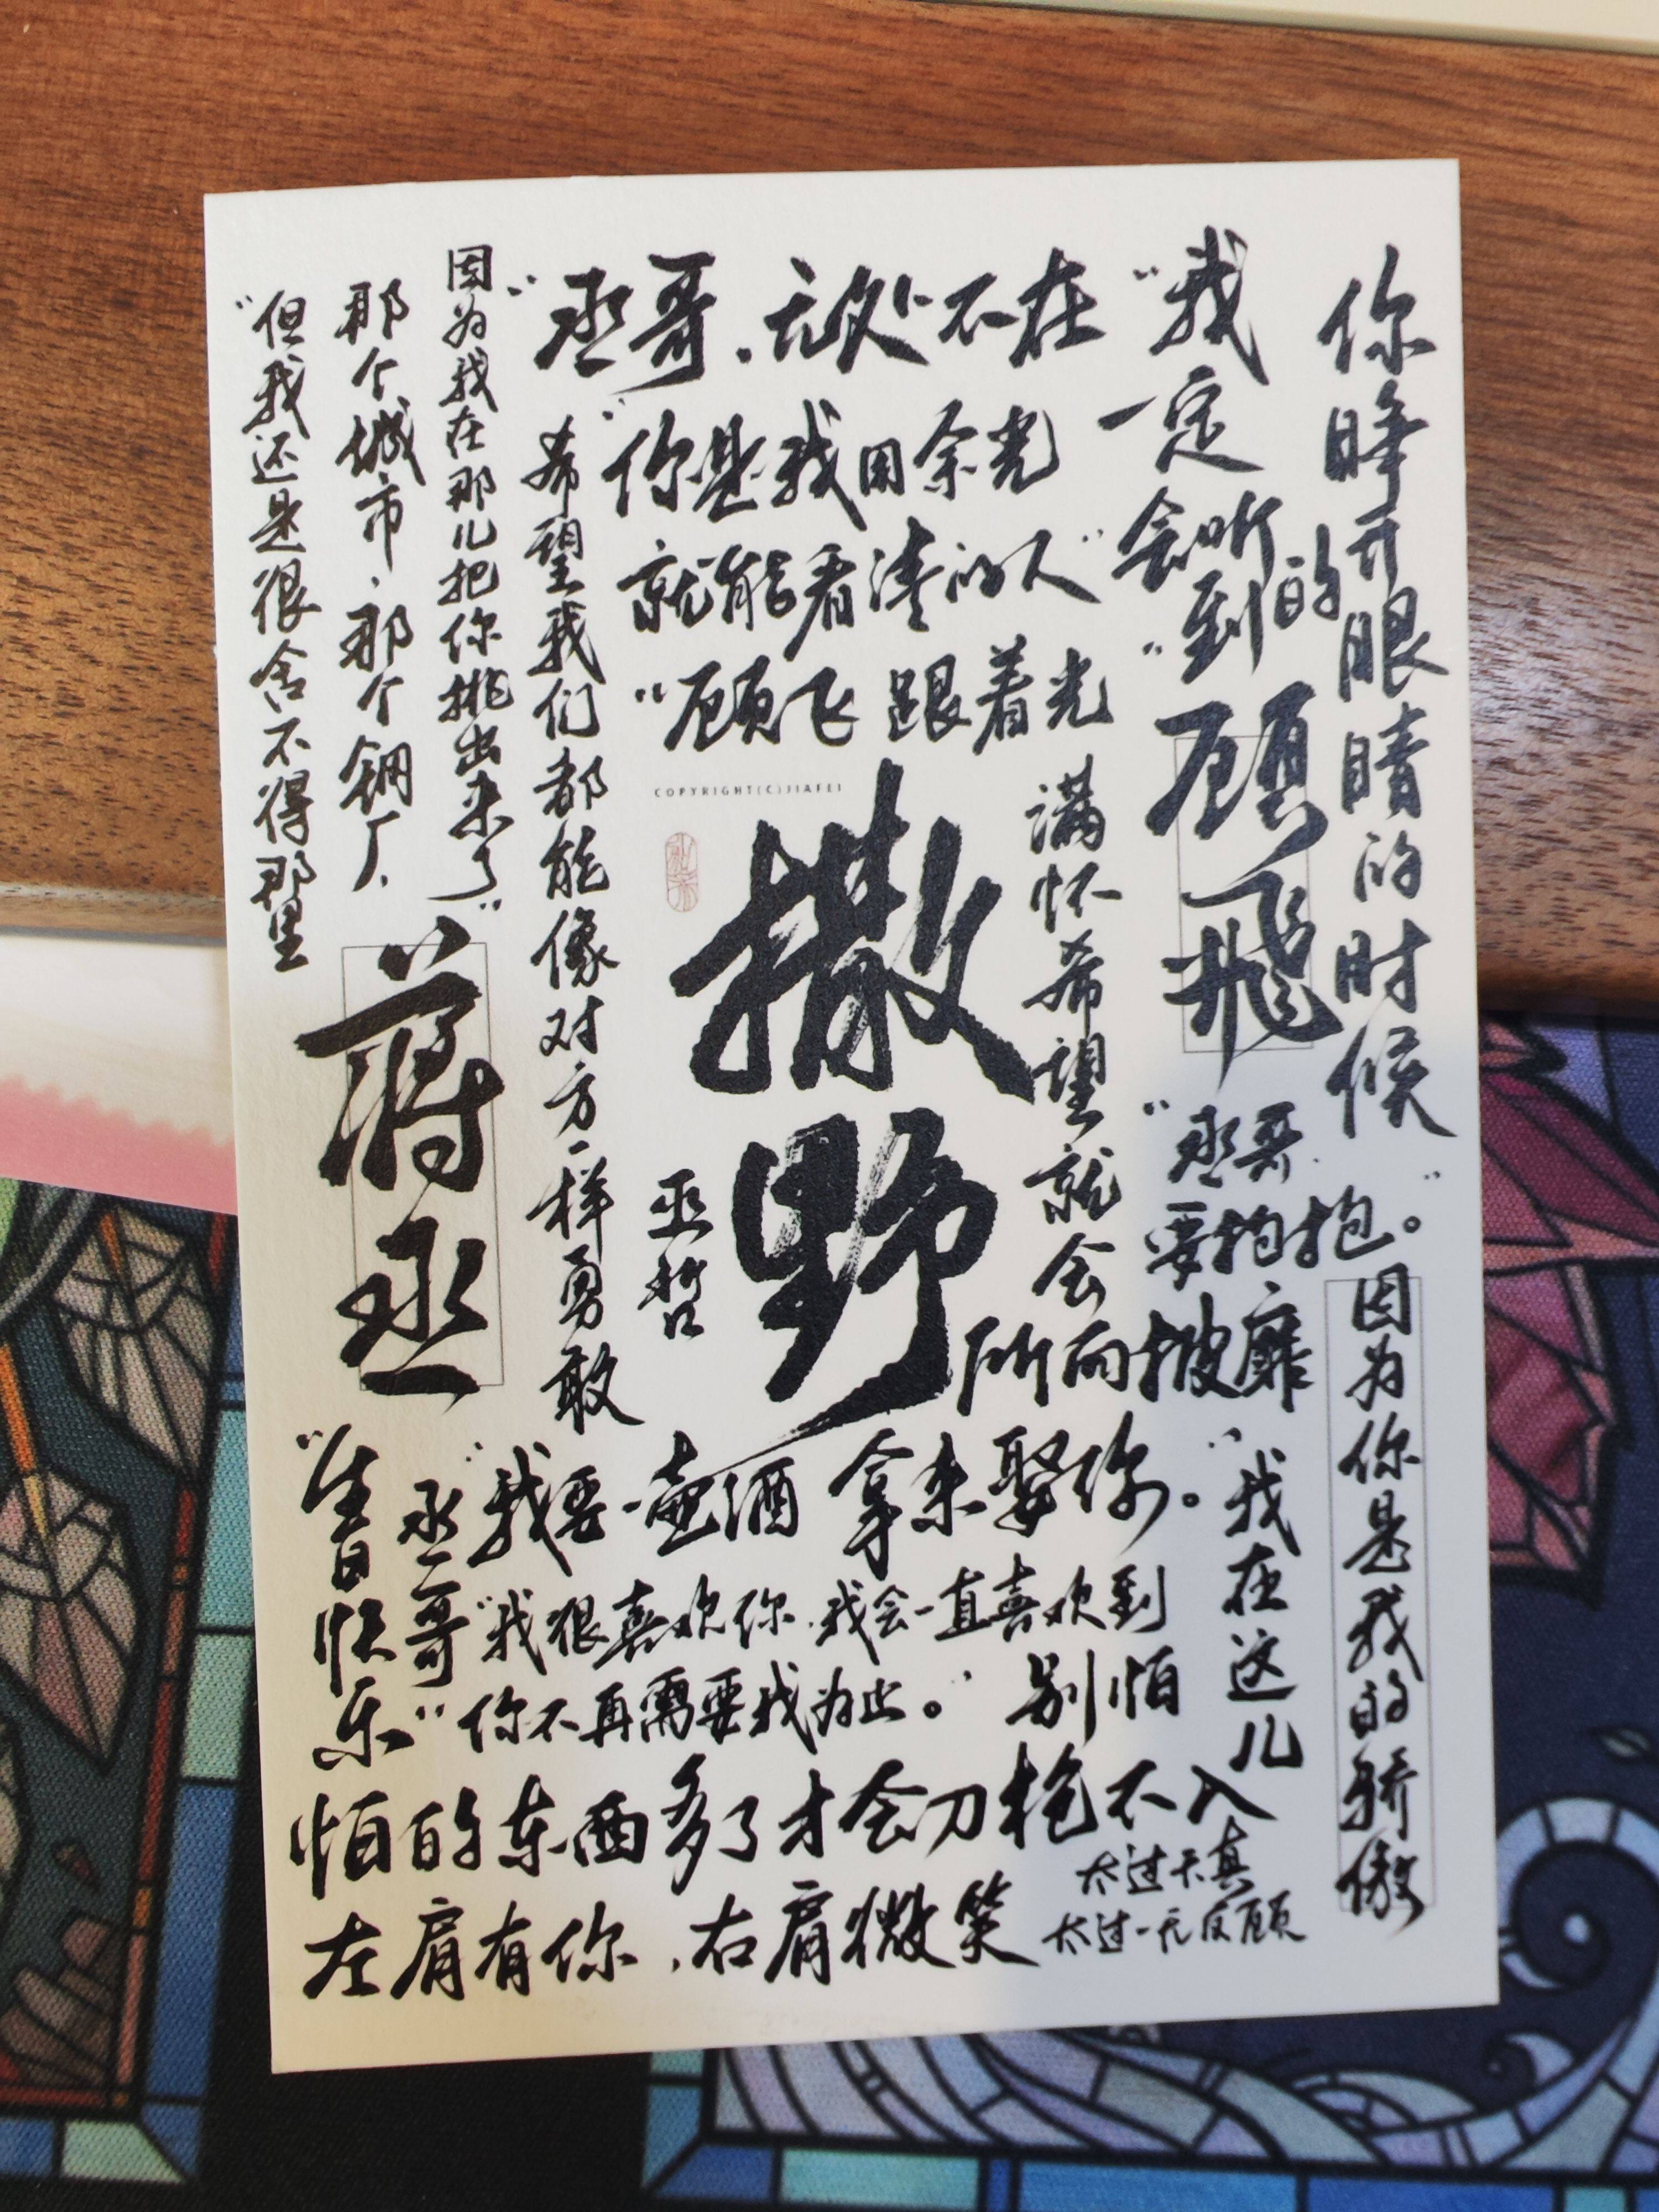 你睁开眼睛的时候
"我一定
会听到的"
顾飛
"丞哥
要抱抱。"
因为你是我的骄傲
丞哥,无处不在"
"你是我用余光
就能看清的人"
"顾飞 跟着光
满怀希望就会
所向披靡"
COPYRIGHT(C)JIAFEI
撒野
巫哲
希望我们都能像对方一样勇敢
因为我在那儿把你挑出来了"
那个城市,那个钢厂,
"但我还是很舍不得那里
蒋丞
"生日快乐"
丞哥"
"我要一壶酒 拿来娶你。"
"我很喜欢你,我会一直喜欢到
你不再需要我为止。"
别怕
我在这儿
怕的东西多了才会刀枪不入
左肩有你,右肩微笑
太过天真
太过一无反顾